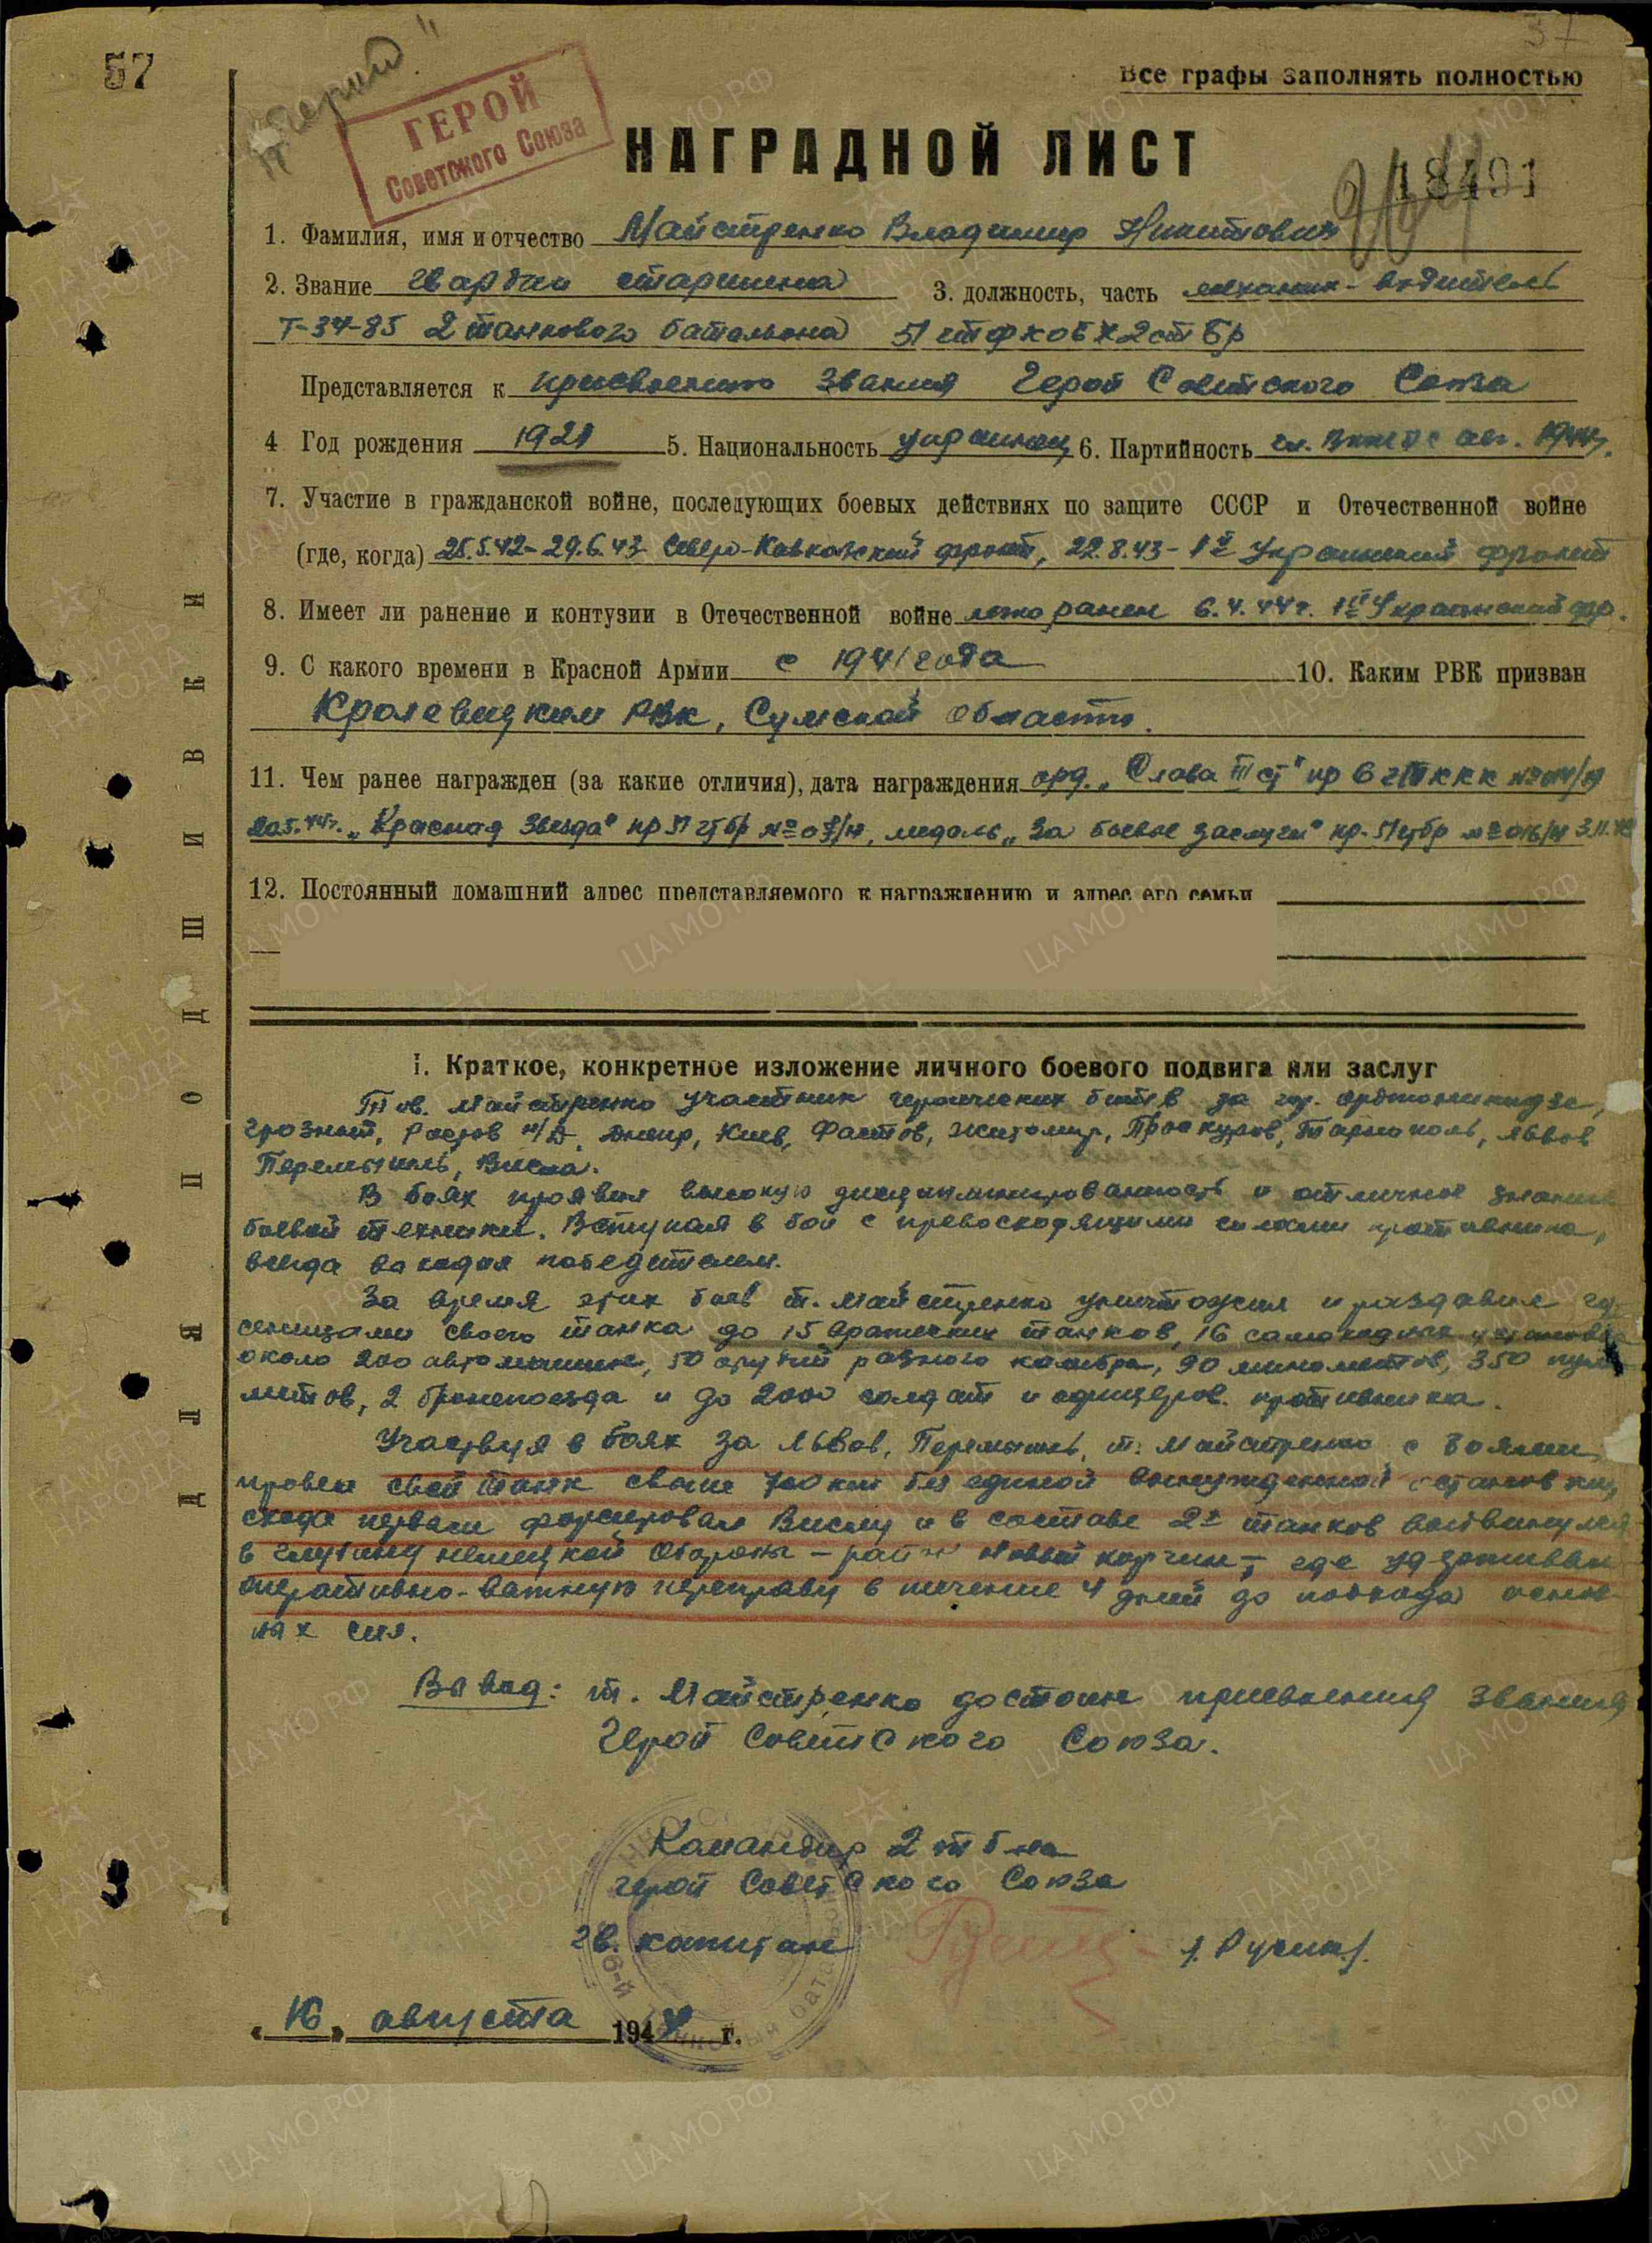 57
37
"Герой"
ГЕРОЙ
Советского Союза
Все графы заполнять полностью
НАГРАДНОЙ ЛИСТ
18491
1. Фамилия, имя и отчество Майстренко Владимир Никитович
2. Звание гвардии старшина 3. должность, часть механик-водитель
Т-34-85 2 танкового батальона 51
Представляется к присвоению звания Герой Советского Союза
4 Год рождения 1921 5. Национальность украинец 6. Партийность чл. ВКП(б) с 1944г.
7. Участие в гражданской войне, последующих боевых действиях по защите СССР и Отечественной войне
(где, когда) 25.5.42-29.6.43 Северо-Кавказский фронт, 22.8.43- 1й Украинский фронт
8. Имеет ли ранение и контузии в Отечественной войне легко ранен 6.4.44г. 1й Украинский фр.
9. С какого времени в Красной Армии с 1941 года 10. Каким РВК призван
Кролевецким РВК, Сумской области.
11. Чем ранее награжден (за какие отличия), дата награждения орд. "Слава III ст" пр 6 гтккк
"Красная Звезда" пр 51 гтбр № 07/н, медаль "За боевые заслуги" пр. 51 гтбр № 016/н
12. Постоянный домашний адрес представляемого к награждению и адрес его семьи
ДЛЯ ПОДШИВКИ
I. Краткое, конкретное изложение личного боевого подвига или заслуг
Тов. Майстренко участник героических битв за гор. Орджоникидзе,
Грозный, Ростов н/Д, Днепр, Киев, Фастов, Житомир, Проскуров, Тарнополь, Львов
Перемышль, Висла.
В боях проявил высокую дисциплинированность и отличное знание
боевой техники. Вступая в бой с превосходящими силами противника,
всегда выходил победителем.
За время этих боев т. Майстренко уничтожил и раздавил гу-
сеницами своего танка до 15 вражеских танков, 16 самоходных установок
около 200 автомашин, 50 орудий разного калибра, 90 минометов, 350 пуле-
метов, 2 бронепоезда и до 2000 солдат и офицеров противника.
Участвуя в боях за Львов, Перемышль, т. Майстренко с боями
провел свой танк свыше 700 км без единой вынужденной остановки,
схода первым форсировал Вислу и в составе 2х танков выдвинулся
в глубину немецкой обороны - район Новый Корчин, где удерживал
оперативно-важную переправу в течение 4 дней до подхода основ-
ных сил.
Вывод: т. Майстренко достоин присвоения звания
Герой Советского Союза.
Командир 2 тб-на
герой Советского Союза
гв. капитан /. Русин./
"16" августа 1944 г.
ПАМЯТЬ НАРОДА
ЦА МО РФ